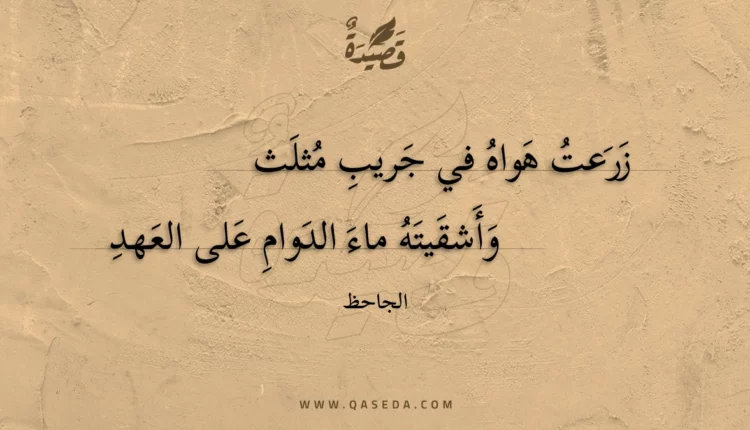 قَصِيدَةٌ
زَرَعتُ هَواهُ في جَريبِ مُثلَث
وَأَشقَيتَهُ ماءَ الدَوامِ عَلى العَهدِ
الجاحظ
WWW.QASEDA.COM